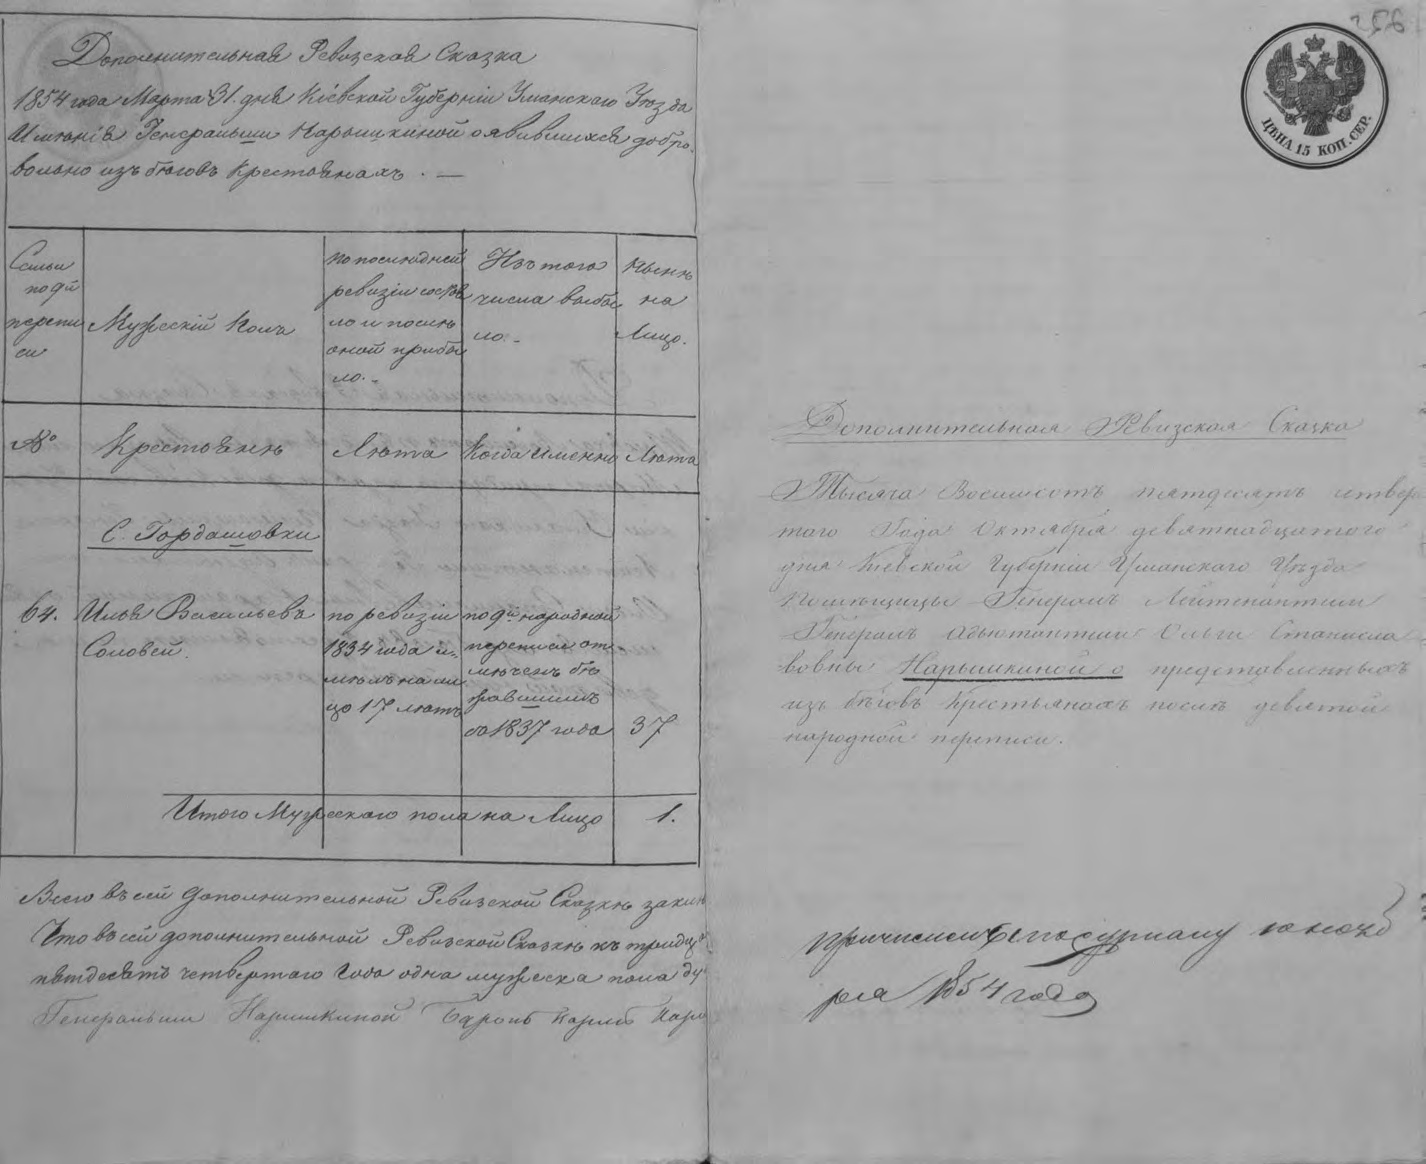 Дополнительная Ревизская Сказка
1854 года Марта 31. дня Кіевской Губерніи Уманскаго Уѣзда
Имѣнія Генеральши Нарышкиной о явившихся добро-
вольно изъ бѣговъ крестьянахъ. —
Семьи
по 9й
перепи
си
Мужескій Полъ
По послѣдней
ревизіи состоя
ло и послѣ
оной прибы
ло. -
Изъ того
числа выбы
ло. -
Нынѣ
на
Лицо.
№
Крестьянѣ
Лѣта
Когда именно
Лѣта
С. Гордашовки
64.
Илья Васильевъ
Соловей.
по ревизіи
1834 года и-
мѣлъ на ли
цо 17 лѣтъ
по 9й народной
переписи от
мѣченъ бѣ
жавшимъ
съ 1837 года
37
Итого Мужескаго пола на Лицо 1.
Всего въ сей дополнительной Ревизской Сказкѣ
Что въ сей дополнительной Ревизской Сказкѣ
пятдесятъ четвертаго Года одна мужеска пола ду
Генеральши Нарышкиной Баронъ Карлъ
256
ЦѢНА 15 КОП. СЕР.
Дополнительная Ревизская Сказка
Тысяча Восемьсотъ пятдесятъ четвер
таго Года Октября девятнадцатаго
дня Кіевской Губерніи Уманскаго Уѣзда
Помѣщицы Генералъ Лейтенантши
Генералъ Адьютантши Ольги Станисла
вовны Нарышкиной о представленныхъ
изъ бѣговъ Крестьянахъ послѣ девятой
народной переписи.
по журналу
ря 1854 года